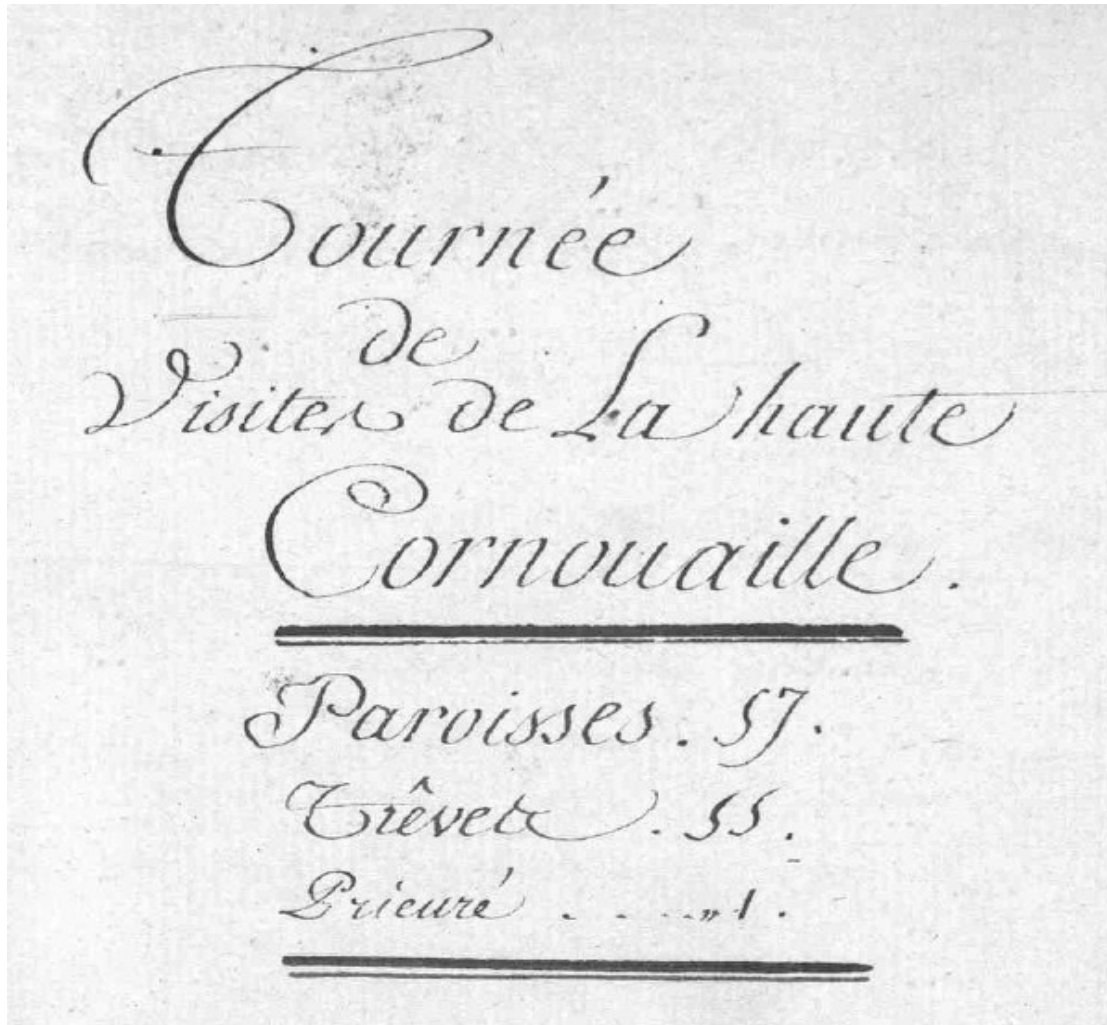 Tournée
de
Visites de La haute
Cornouaille.
Paroisses. 57.
Trêves. 55.
Prieuré . . . . . „ 1.